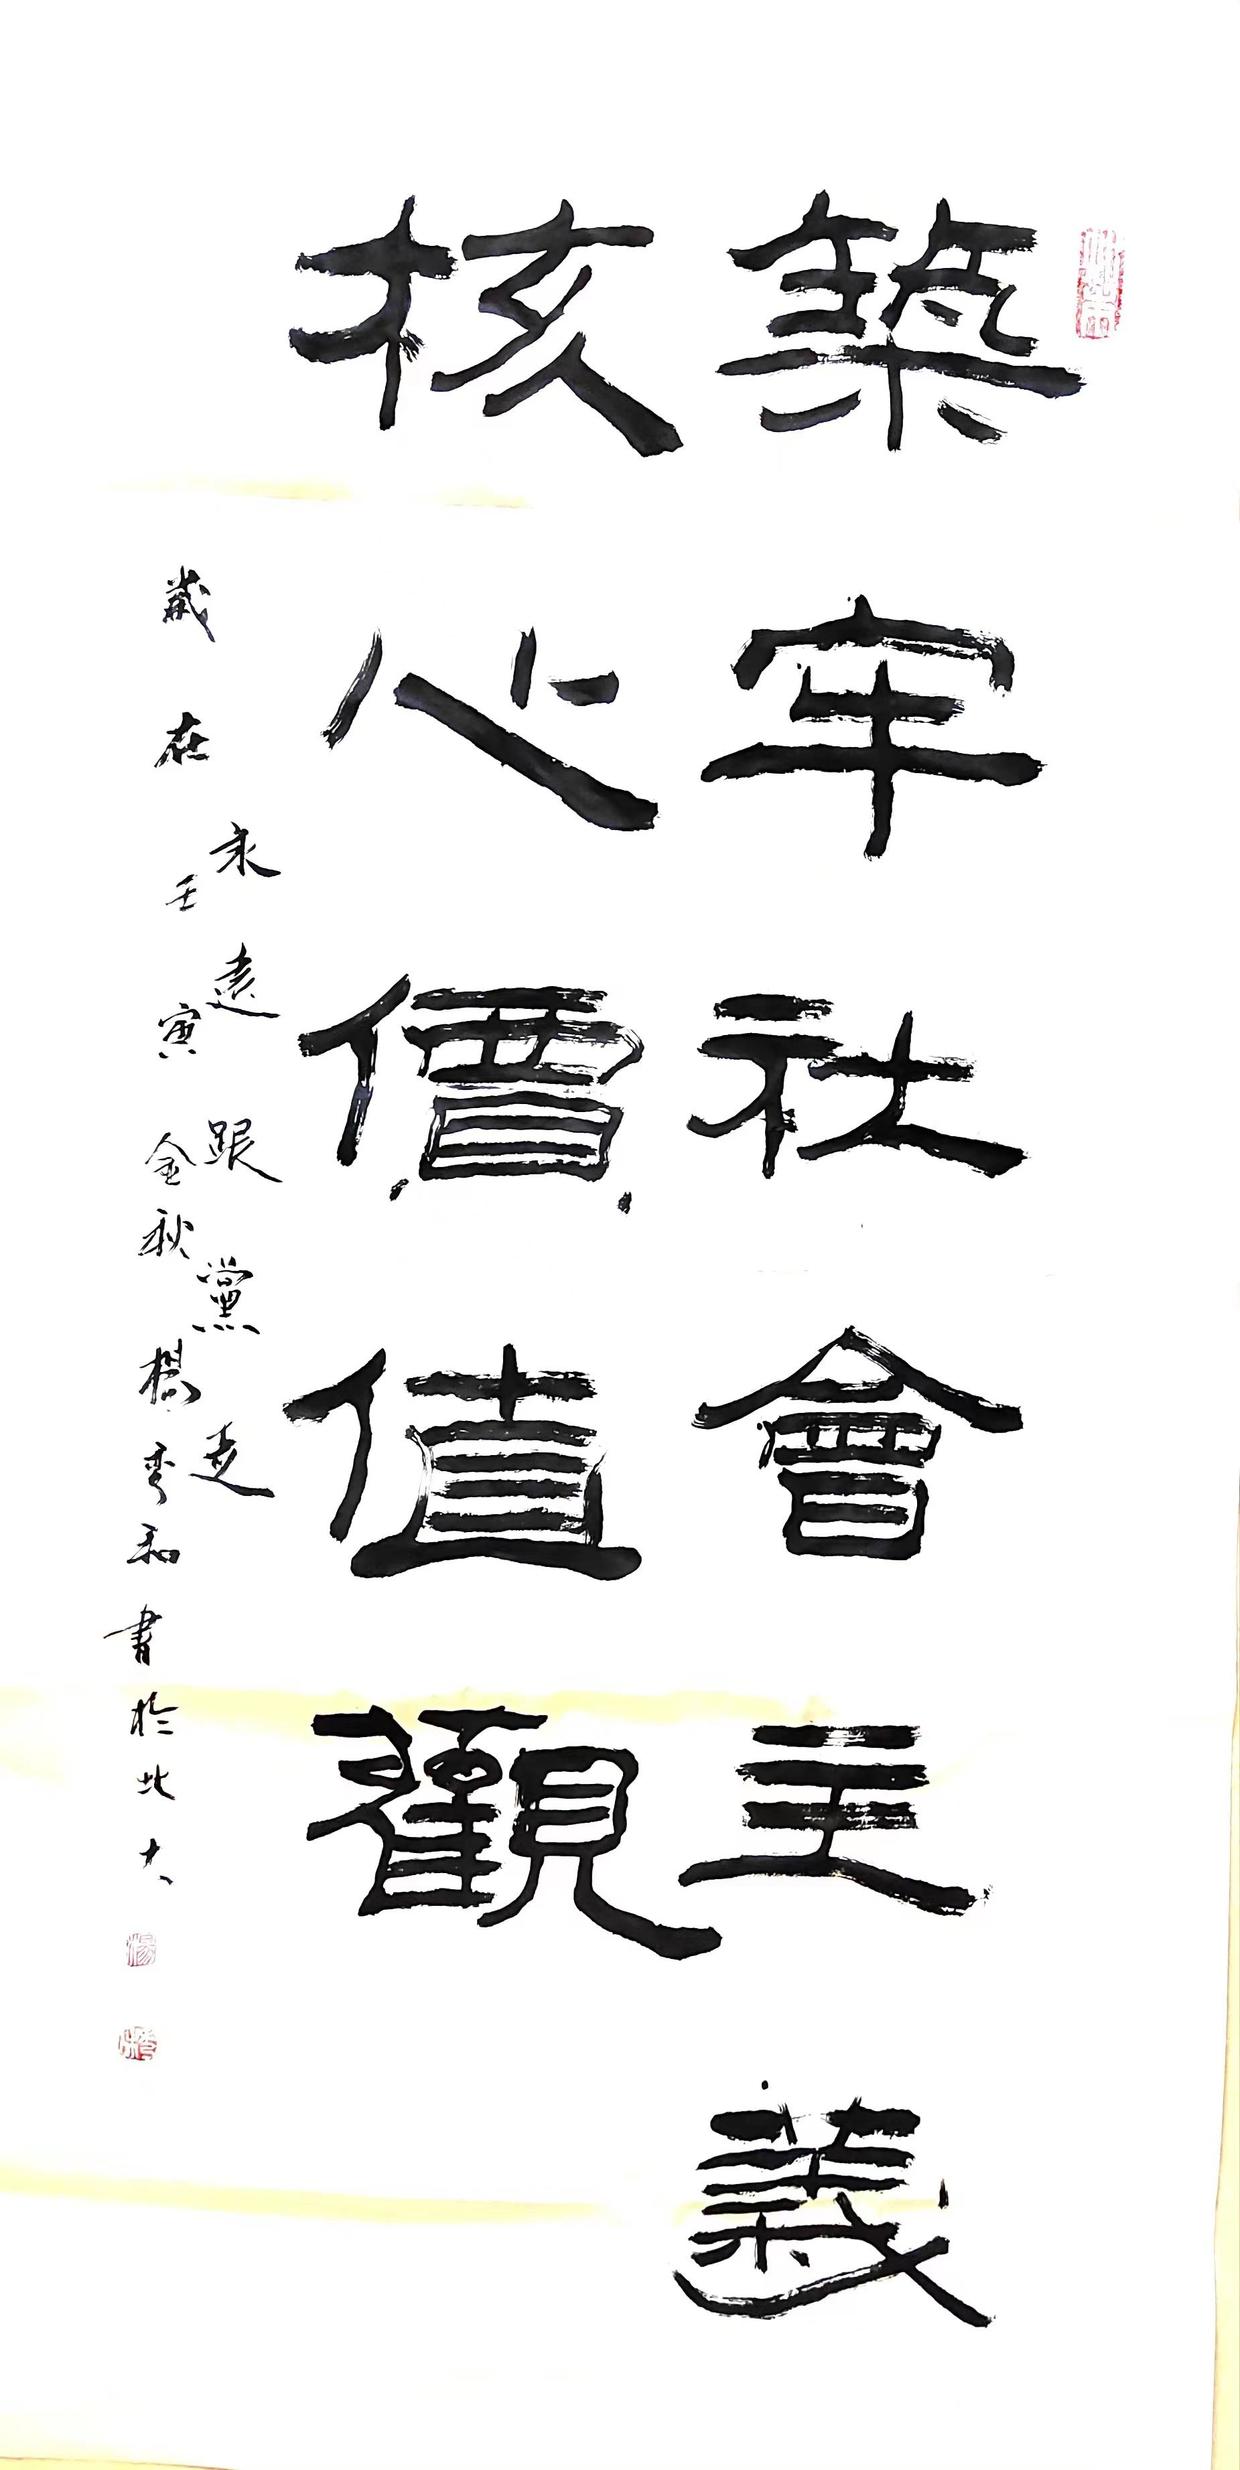 築牢社會主義
核心價值觀
永遠跟黨走
歲在壬寅金秋楊秀和書於北大